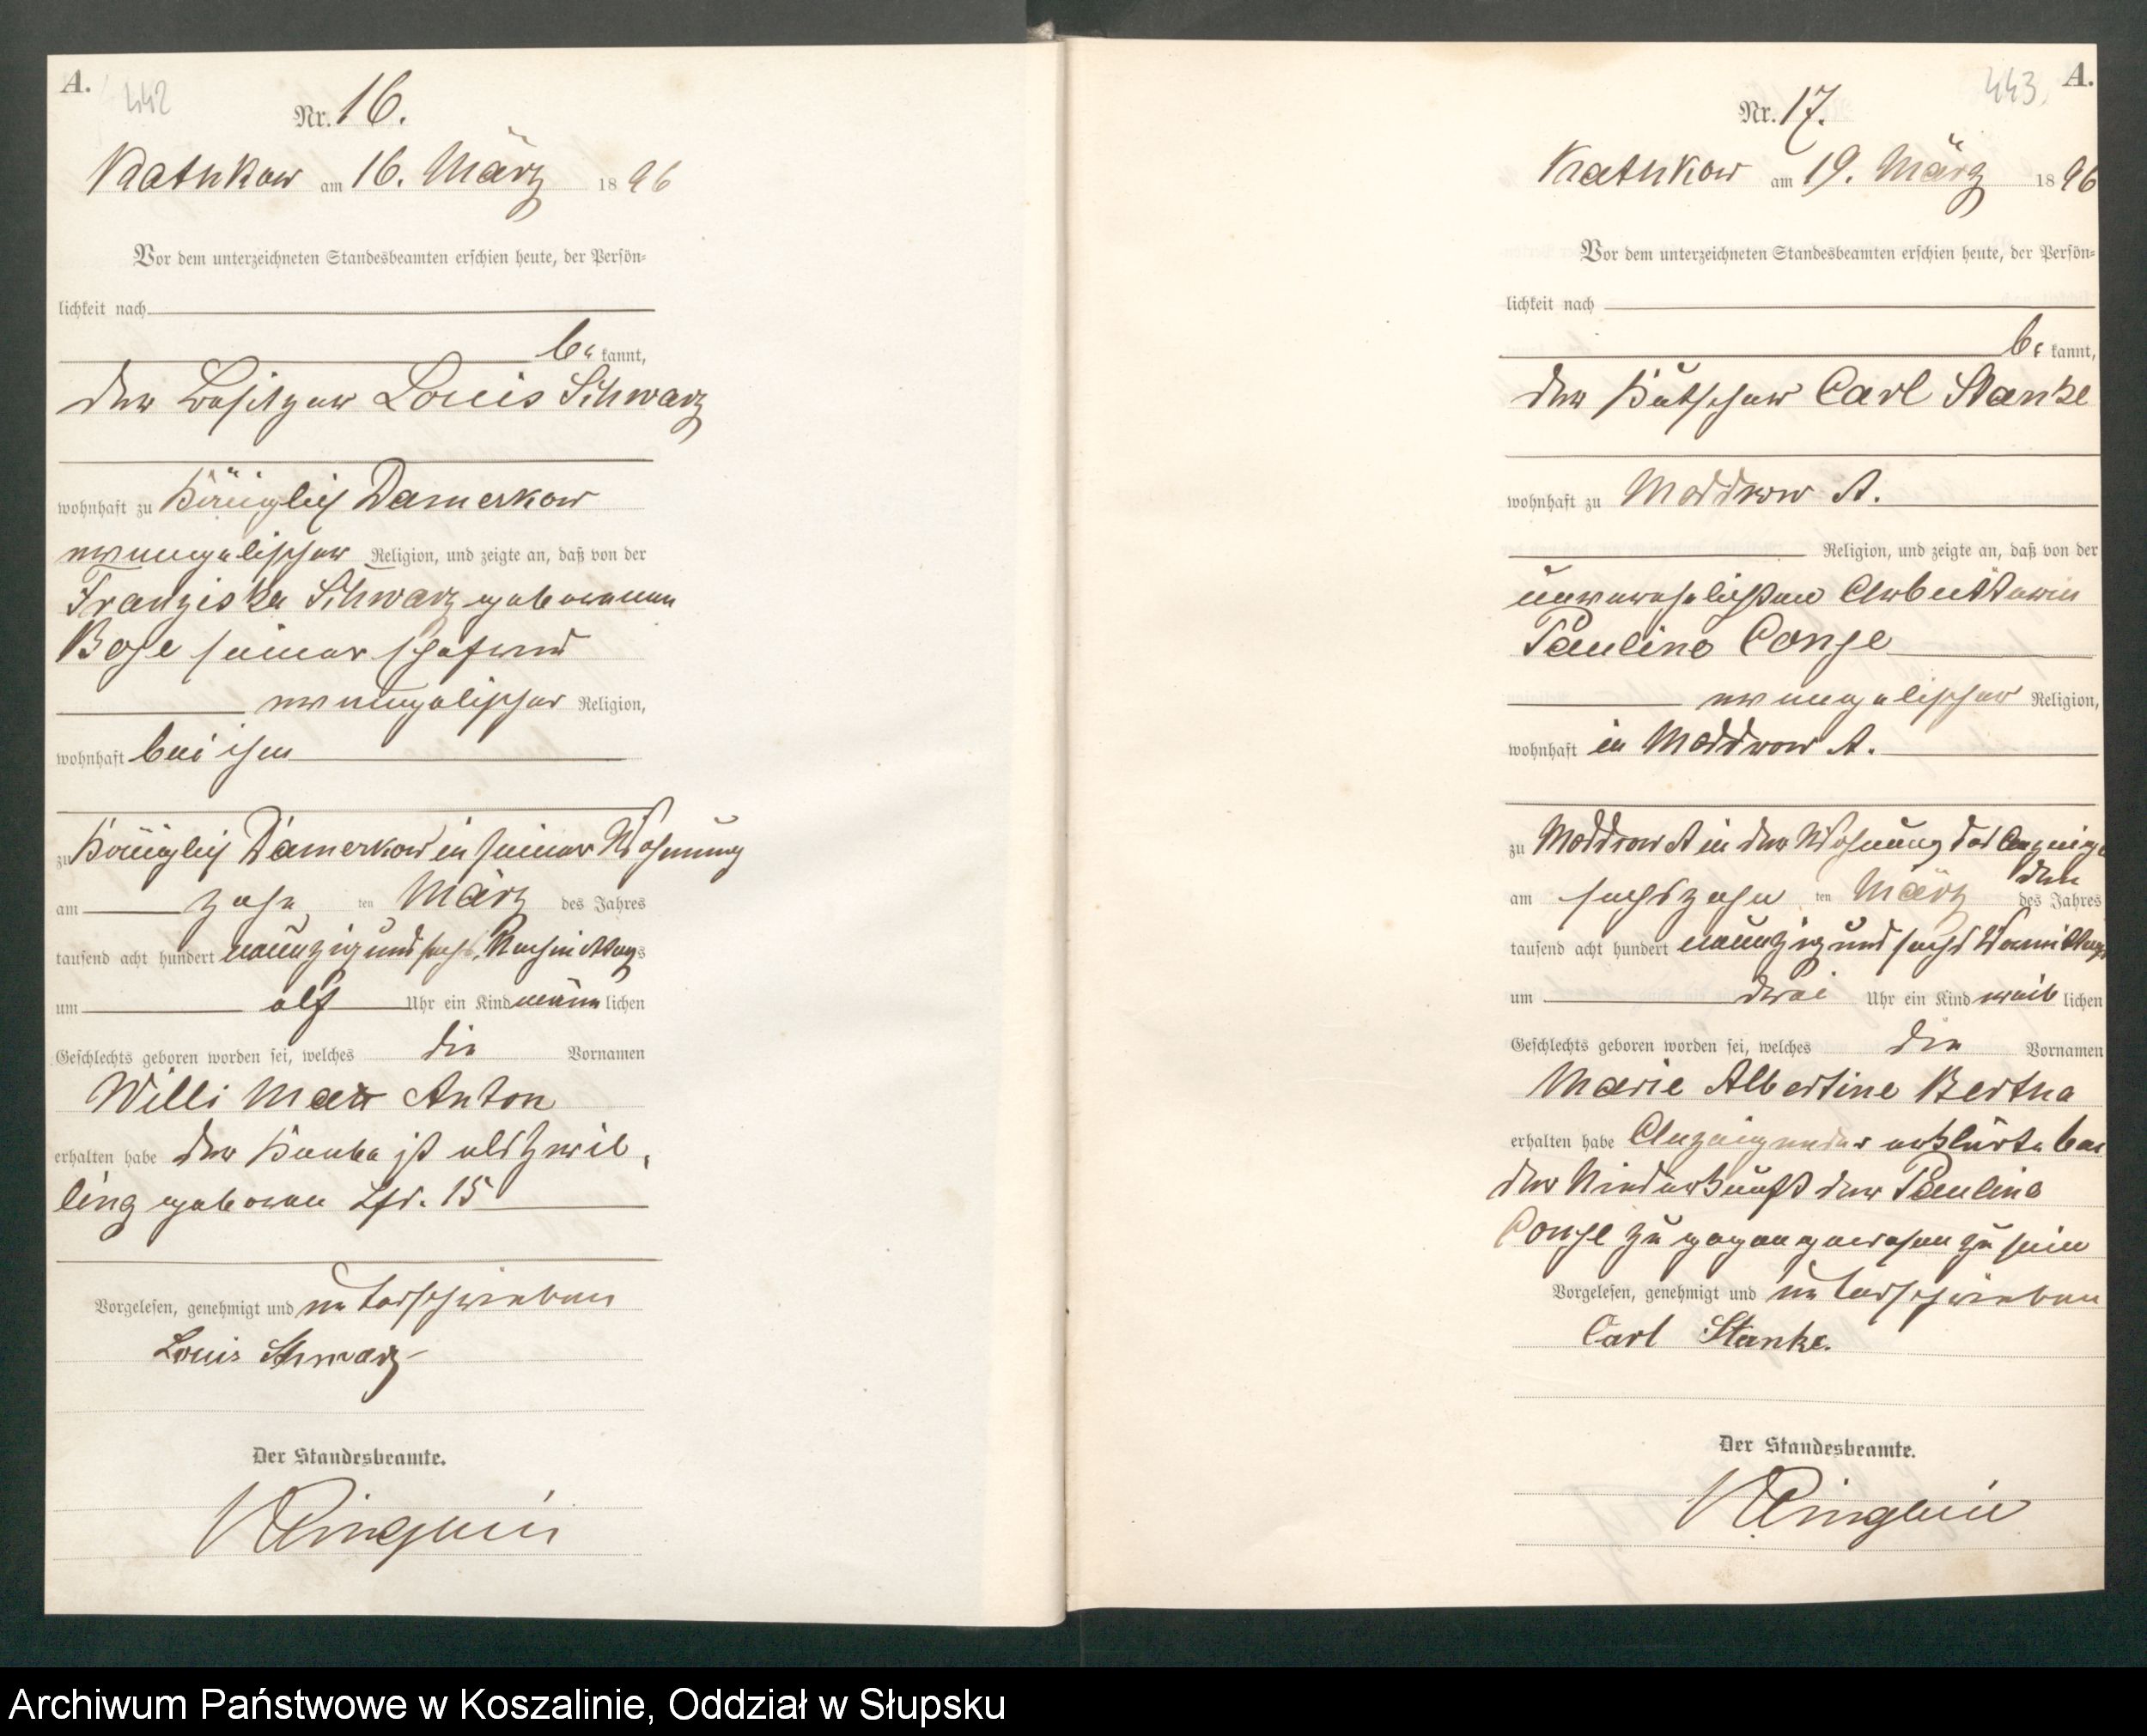 A.
442
Nr. 16.
Rathkow am 16. März 1896
Vor dem unterzeichneten Standesbeamten erschien heute, der Persön-
lichkeit nach
be kannt,
der Besitzer Louis Schwarz
wohnhaft zu Königlich Damerkow
evangelischer Religion, und zeigte an, daß von der
Franziska Schwarz geborenen
Bose seiner Ehefrau
evangelischer Religion,
wohnhaft bei ihm
zu Königlich Damerkow in seiner Wohnung
am zehn ten März des Jahres
tausend acht hundert neunzig und sechs, Nachmittags
um elf Uhr ein Kind männ lichen
Geschlechts geboren worden sei, welches die Vornamen
Willi Max Anton
erhalten habe der Knabe ist als Zwil-
ling geboren Lfd. 15
Vorgelesen, genehmigt und unterschrieben
Louis Schwarz
Der Standesbeamte.
443.
A.
Nr. 17.
Rathkow am 19. März 1896
Vor dem unterzeichneten Standesbeamten erschien heute, der Persön-
lichkeit nach
be kannt,
der Kutscher Carl Stanke
wohnhaft zu Moddrow A.
Religion, und zeigte an, daß von der
unverehelichten Arbeiterin
Pauline Conse
evangelischer Religion,
wohnhaft in Moddrow A.
zu Moddrow A in der Wohnung des Anzeigen
den
am sechszehn ten März des Jahres
tausend acht hundert neunzig und sechs Vormittags
um drei Uhr ein Kind weib lichen
Geschlechts geboren worden sei, welches die Vornamen
Marie Albertine Bertha
erhalten habe Anzeigender erklärte bei
der Niederkunft der Pauline
Conse zugegen gewesen zu sein
Vorgelesen, genehmigt und unterschrieben
Carl Stanke.
Der Standesbeamte.
Archiwum Państwowe w Koszalinie, Oddział w Słupsku